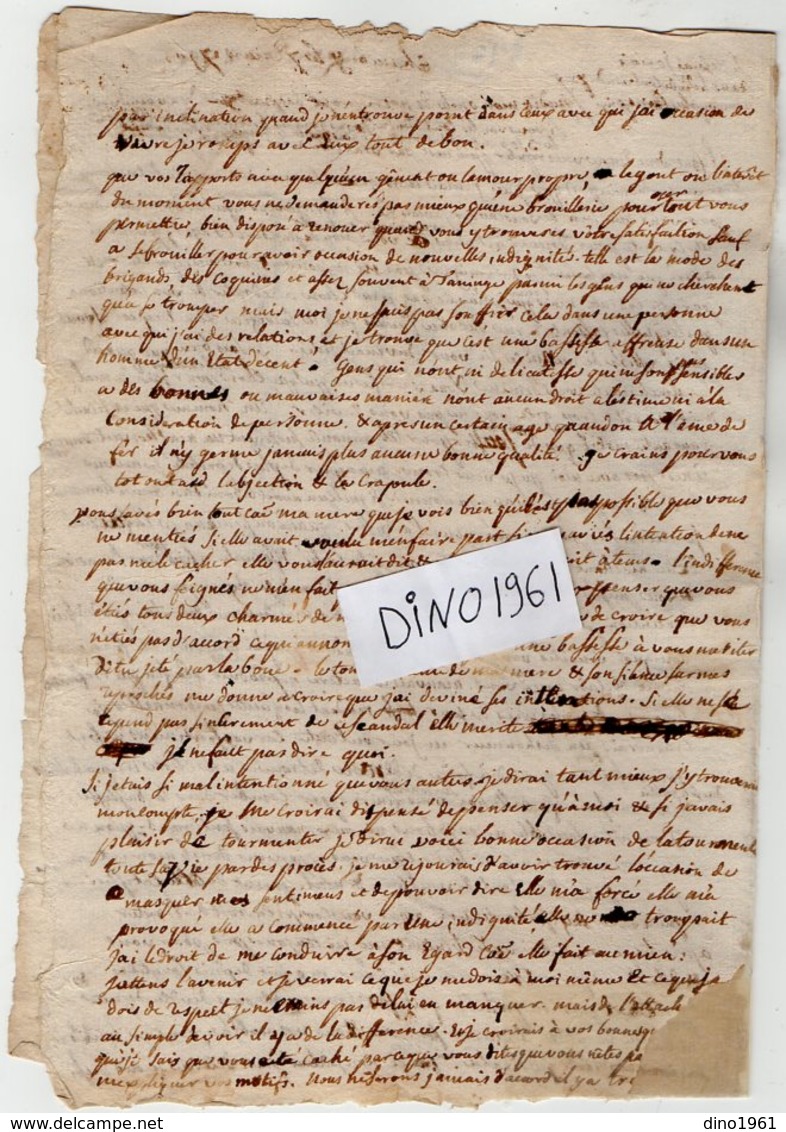 par inclination quand je n'en trouve point dans ceux avec qui j'ai occasion de
vivre je romps avec eux tout de bon.
que vos rapports avec quelqu'un gênent ou l'amour propre, ou le gout ou l'interêt
du moment vous ne demanderés pas mieux qu'une brouillerie pour tout vous
permettre, bien disposé à renouer quand vous y trouverés votre satisfaction sauf
a se brouiller pour avoir occasion de nouvelles indignités. telle est la mode des
brigands, des coquins et assez souvent à Taninge parmi les gens qui ne cherchent
qu'à se tromper mais moi je ne sais pas souffrir cela dans une personne
avec qui j'ai des relations et je trouve que c'est une bassesse affreuse dans un
homme d'un Etat décent. Gens qui n'ont ni delicatesse qui ne sont sensibles
a des bonnes ou mauvaises maniere n'ont aucun droit a l'estime ni à la
consideration de personne. & apres un certain age quand on a l'ame de
fer il n'y germe jamais plus aucune bonne qualité. je crains pour vous
tot ou tard l'abjection & la crapule.
vous avés bien tout caé ma mere que je vois bien qu'il est pas possible que vous
ne mentiés si elle avait voulu m'en faire part si aviés l'intention de ne
pas me le cacher elle vous l'aurait dit & à tems. l'indifference
que vous feignés ne m'en fait penser que vous
étiés tous deux charmés de de croire que vous
n'etiés pas d'accord ce qui annon une bassesse à vous meriter
d'etre jeté par la boue. le ton de ma mere & son silence sur mes
reproches me donne a croire que j'ai deviné ses intentions. Si elle ne se
repend pas sincerement de ce scandal elle merite
je ne sait pas dire quoi.
Si j'etais si mal intentionné que vous autres je dirai tant mieux j'y trouverai
mon compte, je me croirai dispensé de penser qu'à moi & si j'avais
plaisir de tourmenter je dirai voici bonne occasion de la tourmenter
toute sa vie par des procès. je me rejouirais d'avoir trouvé l'occasion de
masquer mes sentimens et de pouvoir dire elle m'a forcé elle m'a
provoqué elle a commencé par une indignité elle me trompait
j'ai le droit de me conduire à son egard coé elle fait au mien:
j'attens l'avenir et je verrai ce que je me dois à moi même et ce que je
dois de respect je ne crains pas de lui en manquer. mais de l'attache
au simple devoir il y a de la difference. Et je croirais à vos bonnes
que je sais que vous eté caché parceque vous dites que vous n'êtes pa
m'expliquer vos motifs. Nous ne serons jamais d'accord il y a
DiNO1961
dino1961